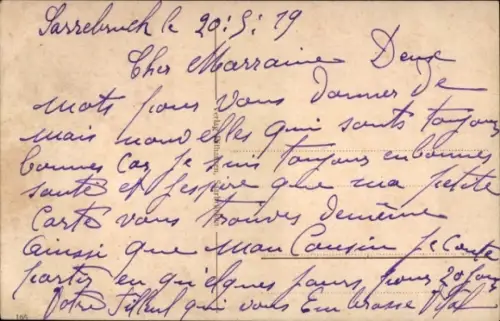 Sarrebruck le 20:5:19
Cher Marraine Deux
mots pour vous donner de
mais nouvelles qui sonts toujour
bonnes Car Je suis toujours en bonnes
santé et J'espère que ma petite
Carte vous trouves de même
ainsi que mon Cousin Je conte
partir en quelques jours pour 20 jour
Votre Filleul qui vous Embrasse